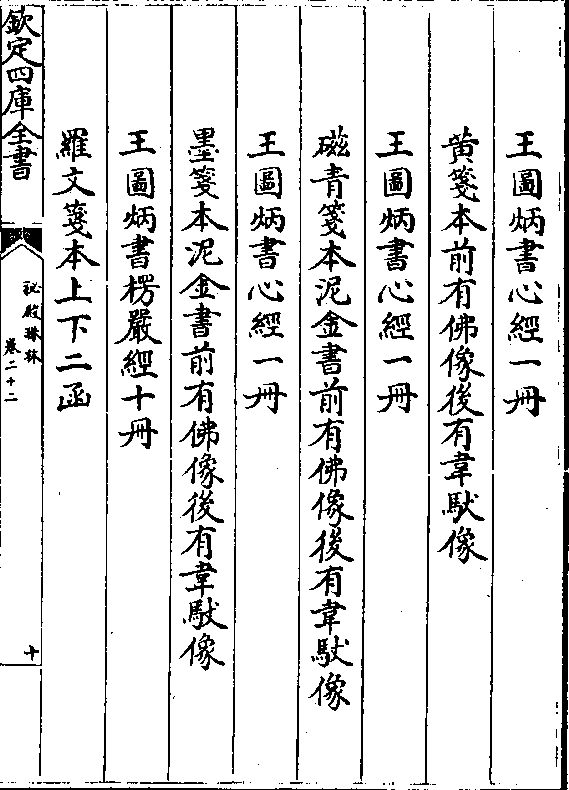 王圖炳書心經一冊
黄箋本前有佛像後有韋馱像
王圖炳書心經一冊
磁青箋本泥金書前有佛像後有韋馱像
王圖炳書心經一冊
墨箋本泥金書前有佛像後有韋馱像
王圖炳書楞嚴經十冊
羅文箋本上下二函
欽定四庫全書
秘殿珠林
卷二十二
十